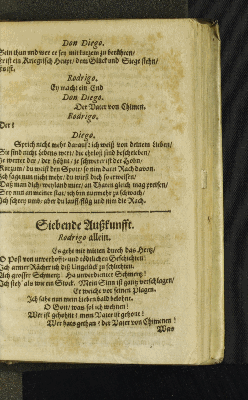 Don Diego.
Sein thun und wer er sey mit kurtzem zu berühren/
Er ist ein Kriegrisch Heupt/ dem Glück und Siege stehn/
Rodrigo.
Ey nacht ein End
Don Diego.
Der Vater von Chimen.
Rodrigo.
Der
Diego.
Sprich nicht mehr darauf: ich weiß von deinem Lieben/
Sie sind nicht lebens wert/ die ehrloß sind beschrieben/
Je werter der/ der höhnt/ je schwerer ist der Hohn/
Kurtzum/ du weist den Spott: so nim dann Rach davon.
Ich sage nun nicht mehr/ du wirst dich so erweisen/
Daß man dich/ wey land mich/ an Thaten gleich mag preisen/
Sey mut an meine stat/ ich bin nunmehr zu schwach/
Ich schrey umb/ aber du lauff/ flüg und nim die Rach.
Siebende Außkunfft.
Rodrigo allein.
Es geht mir mitten durch das Hertz/
O Post von unverhofft- und tödtlichen Geschichten!
Ich armer Rächer ich diß Unglück zu schlichten.
Ach grosser Schmertz! Ha unverdienter Schmertz!
Ich steh' als wie ein Stock. Mein Sinn ist gantz verschlagen/
Er weicht vor seinen Plagen.
Ich sahe nun mein Lieben bald belohnt.
O Gott/ was sol ich wehnen!
Wer ist gehöhnt? mein Vater ist gehönt!
Wer hats gethan? der Vater von Chimenen!
Was